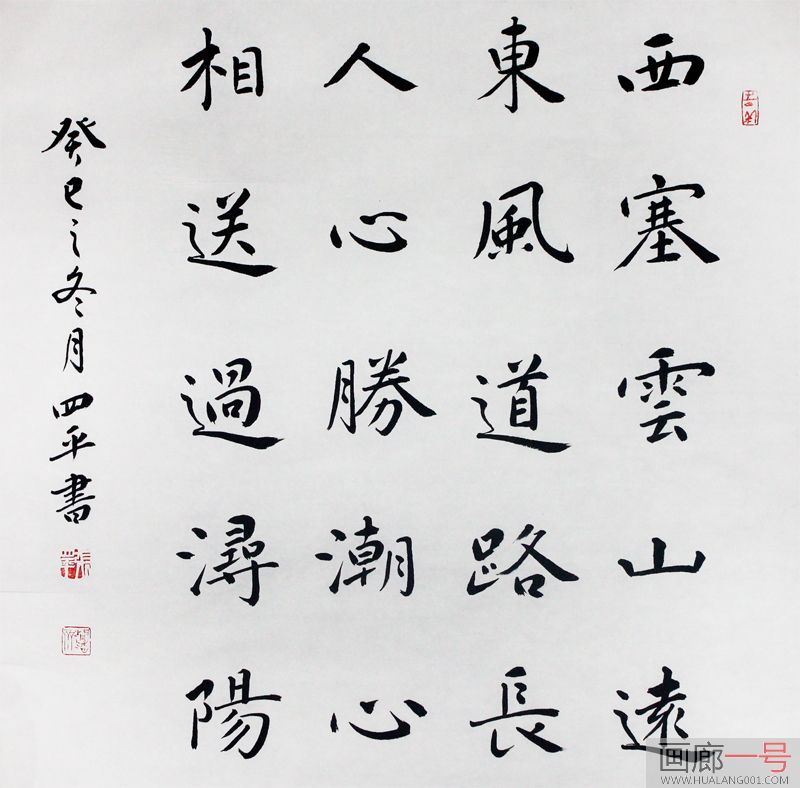 西塞雲山遠
東風道路長
人心勝潮心
相送過潯陽
癸巳之冬月四平書
画廊一号
WWW.HUALANG001.COM